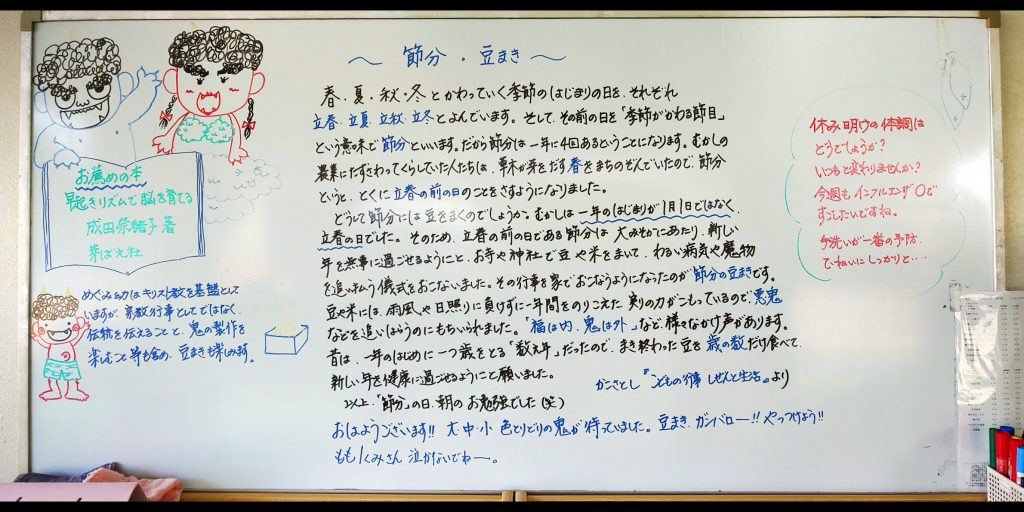 〜 節分・豆まき 〜
春・夏・秋・冬とかわっていく季節のはじまりの日を、それぞれ
立春・立夏・立秋・立冬とよんでいます。そして、その前の日を「季節がかわる節目」
という意味で節分といいます。だから節分は一年に4回あるということになります。むかしの
農業にたずさわってくらしていた人たちは、草木が芽をだす春をまちのぞんでいたので、節分
というと、とくに立春の前の日のことをさすようになりました。
どうして節分には豆をまくのでしょうか。むかしは一年のはじまりが1月1日ではなく、
立春の日でした。そのため、立春の前の日である節分は大みそかにあたり、新しい
年を無事に過ごせるようにと、お寺や神社で豆や米をまいて、わるい病気や魔物
を追い払う儀式をおこないました。その行事を家でおこなうようになったのが節分の豆まきです。
豆や米には、雨風や日照りに負けずに一年間をのりこえた実りの力がこもっているので、悪鬼
などを追いはらうのにもちいられました。「福は内、鬼は外」など様々なかけ声があります。
昔は、一年のはじめに一つ歳をとる「数え年」だったので、まき終わった豆を歳の数だけ食べて、
新しい年を健康に過ごせるようにと願いました。
かこさとし『こどもの行事 しぜんと生活』より
以上、「節分」の日、朝のお勉強でした(笑)
おはようございます!! 大・中・小 色とりどりの鬼が待っていました。豆まき、ガンバロー!! やっつけよう!!
もも1くみさん 泣かないでねー。
お薦めの本
早起きリズムで脳を育てる
成田奈緒子 著
芽ばえ社
めぐみ幼はキリスト教を基盤として
いますが、宗教行事としてではなく、
伝統を伝えることと、鬼の製作を
楽しむこと等も含め、豆まきも楽しみます。
休み明けの体調は
どうでしょうか?
いつもと変わりませんか?
今週もインフルエンザ0で
すごしたいですね。
手洗いが一番の予防
ていねいにしっかりと‥‥